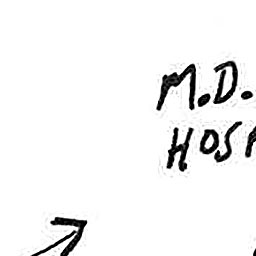 M.D.
HOS